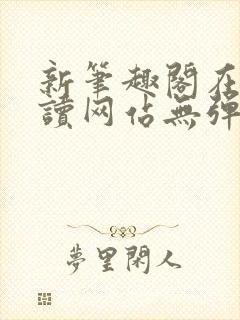 新筆趣閣在
讀网佔無彈
夢里閑人